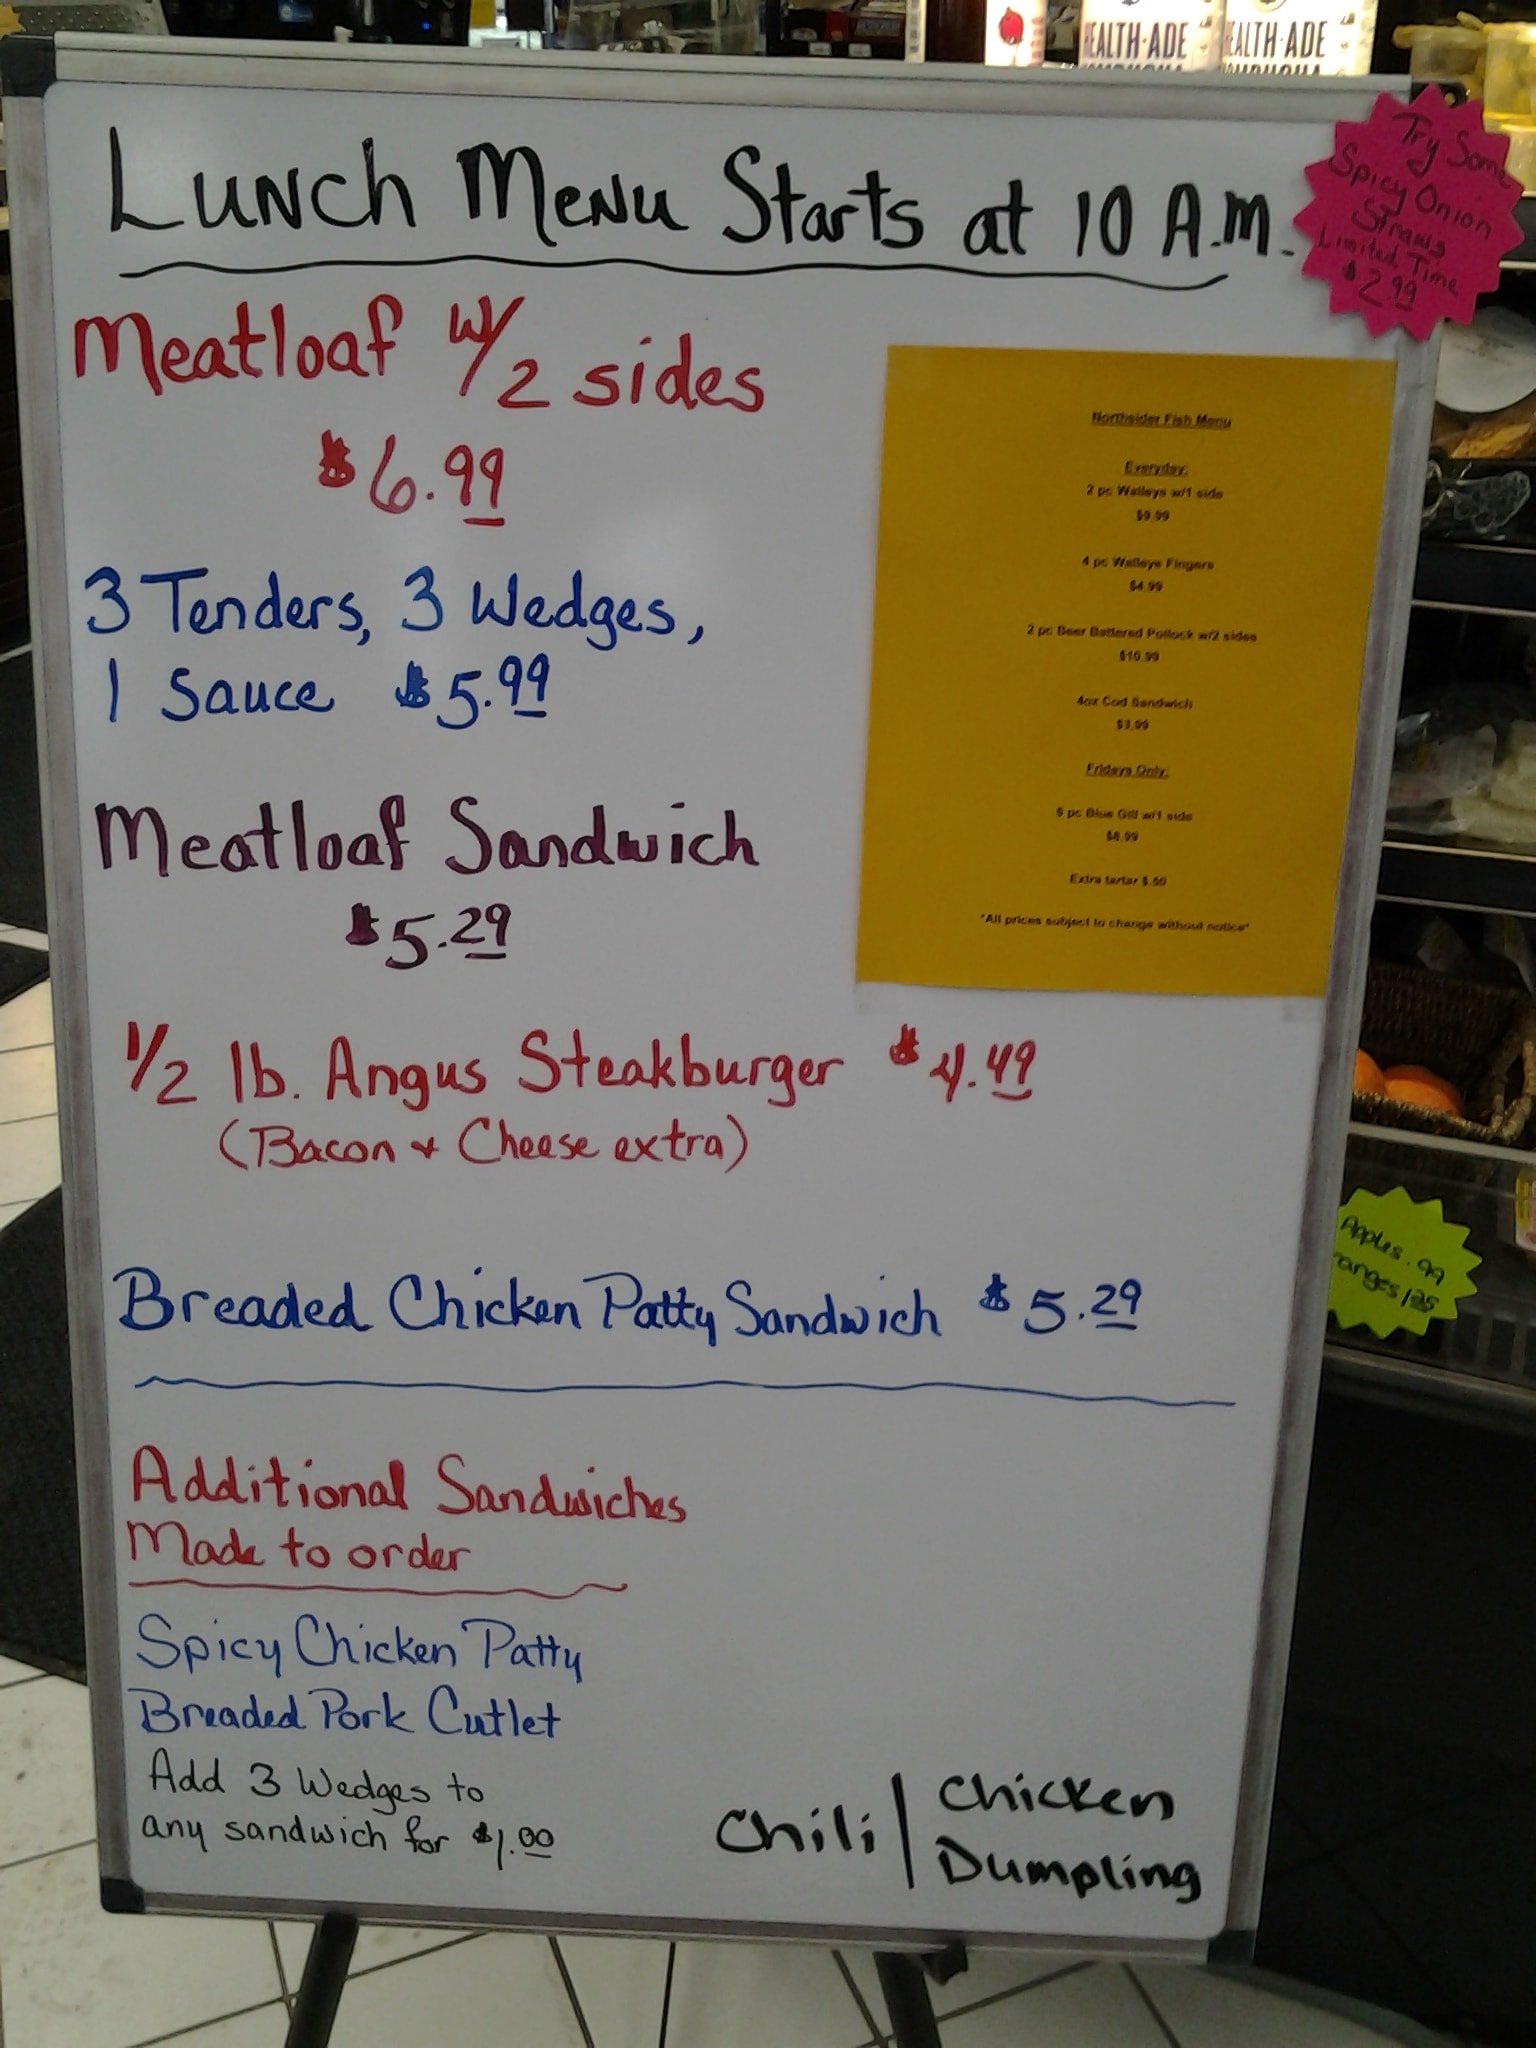 EALTH-ADE
EALTH-ADE
Lunch Menu Starts at 10 A.M.
Try Some
Spicy Onion
Straws
Limited Time
$2.99
Meatloaf w/2 sides
$6.99
3 Tenders, 3 Wedges,
1 Sauce $5.99
Meatloaf Sandwich
$5.29
1/2 lb. Angus Steakburger $4.49
(Bacon + Cheese extra)
Breaded Chicken Patty Sandwich $5.29
Northsider Fish Menu
Everyday:
2 pc Walleye w/1 side
$9.99
4 pc Walleye Fingers
$4.99
2 pc Beer Battered Pollock w/2 sides
$10.99
4oz Cod Sandwich
$3.99
Fridays Only:
pc Blue Gill w/1 side
Extra tartar $.50
*All prices subject to change without notice*
Apples .99
ranges 1.25
Additional Sandwiches
Made to order
Spicy Chicken Patty
Breaded Pork Cutlet
Add 3 Wedges to
any sandwich for $1.00
Chili | Chicken
Dumpling